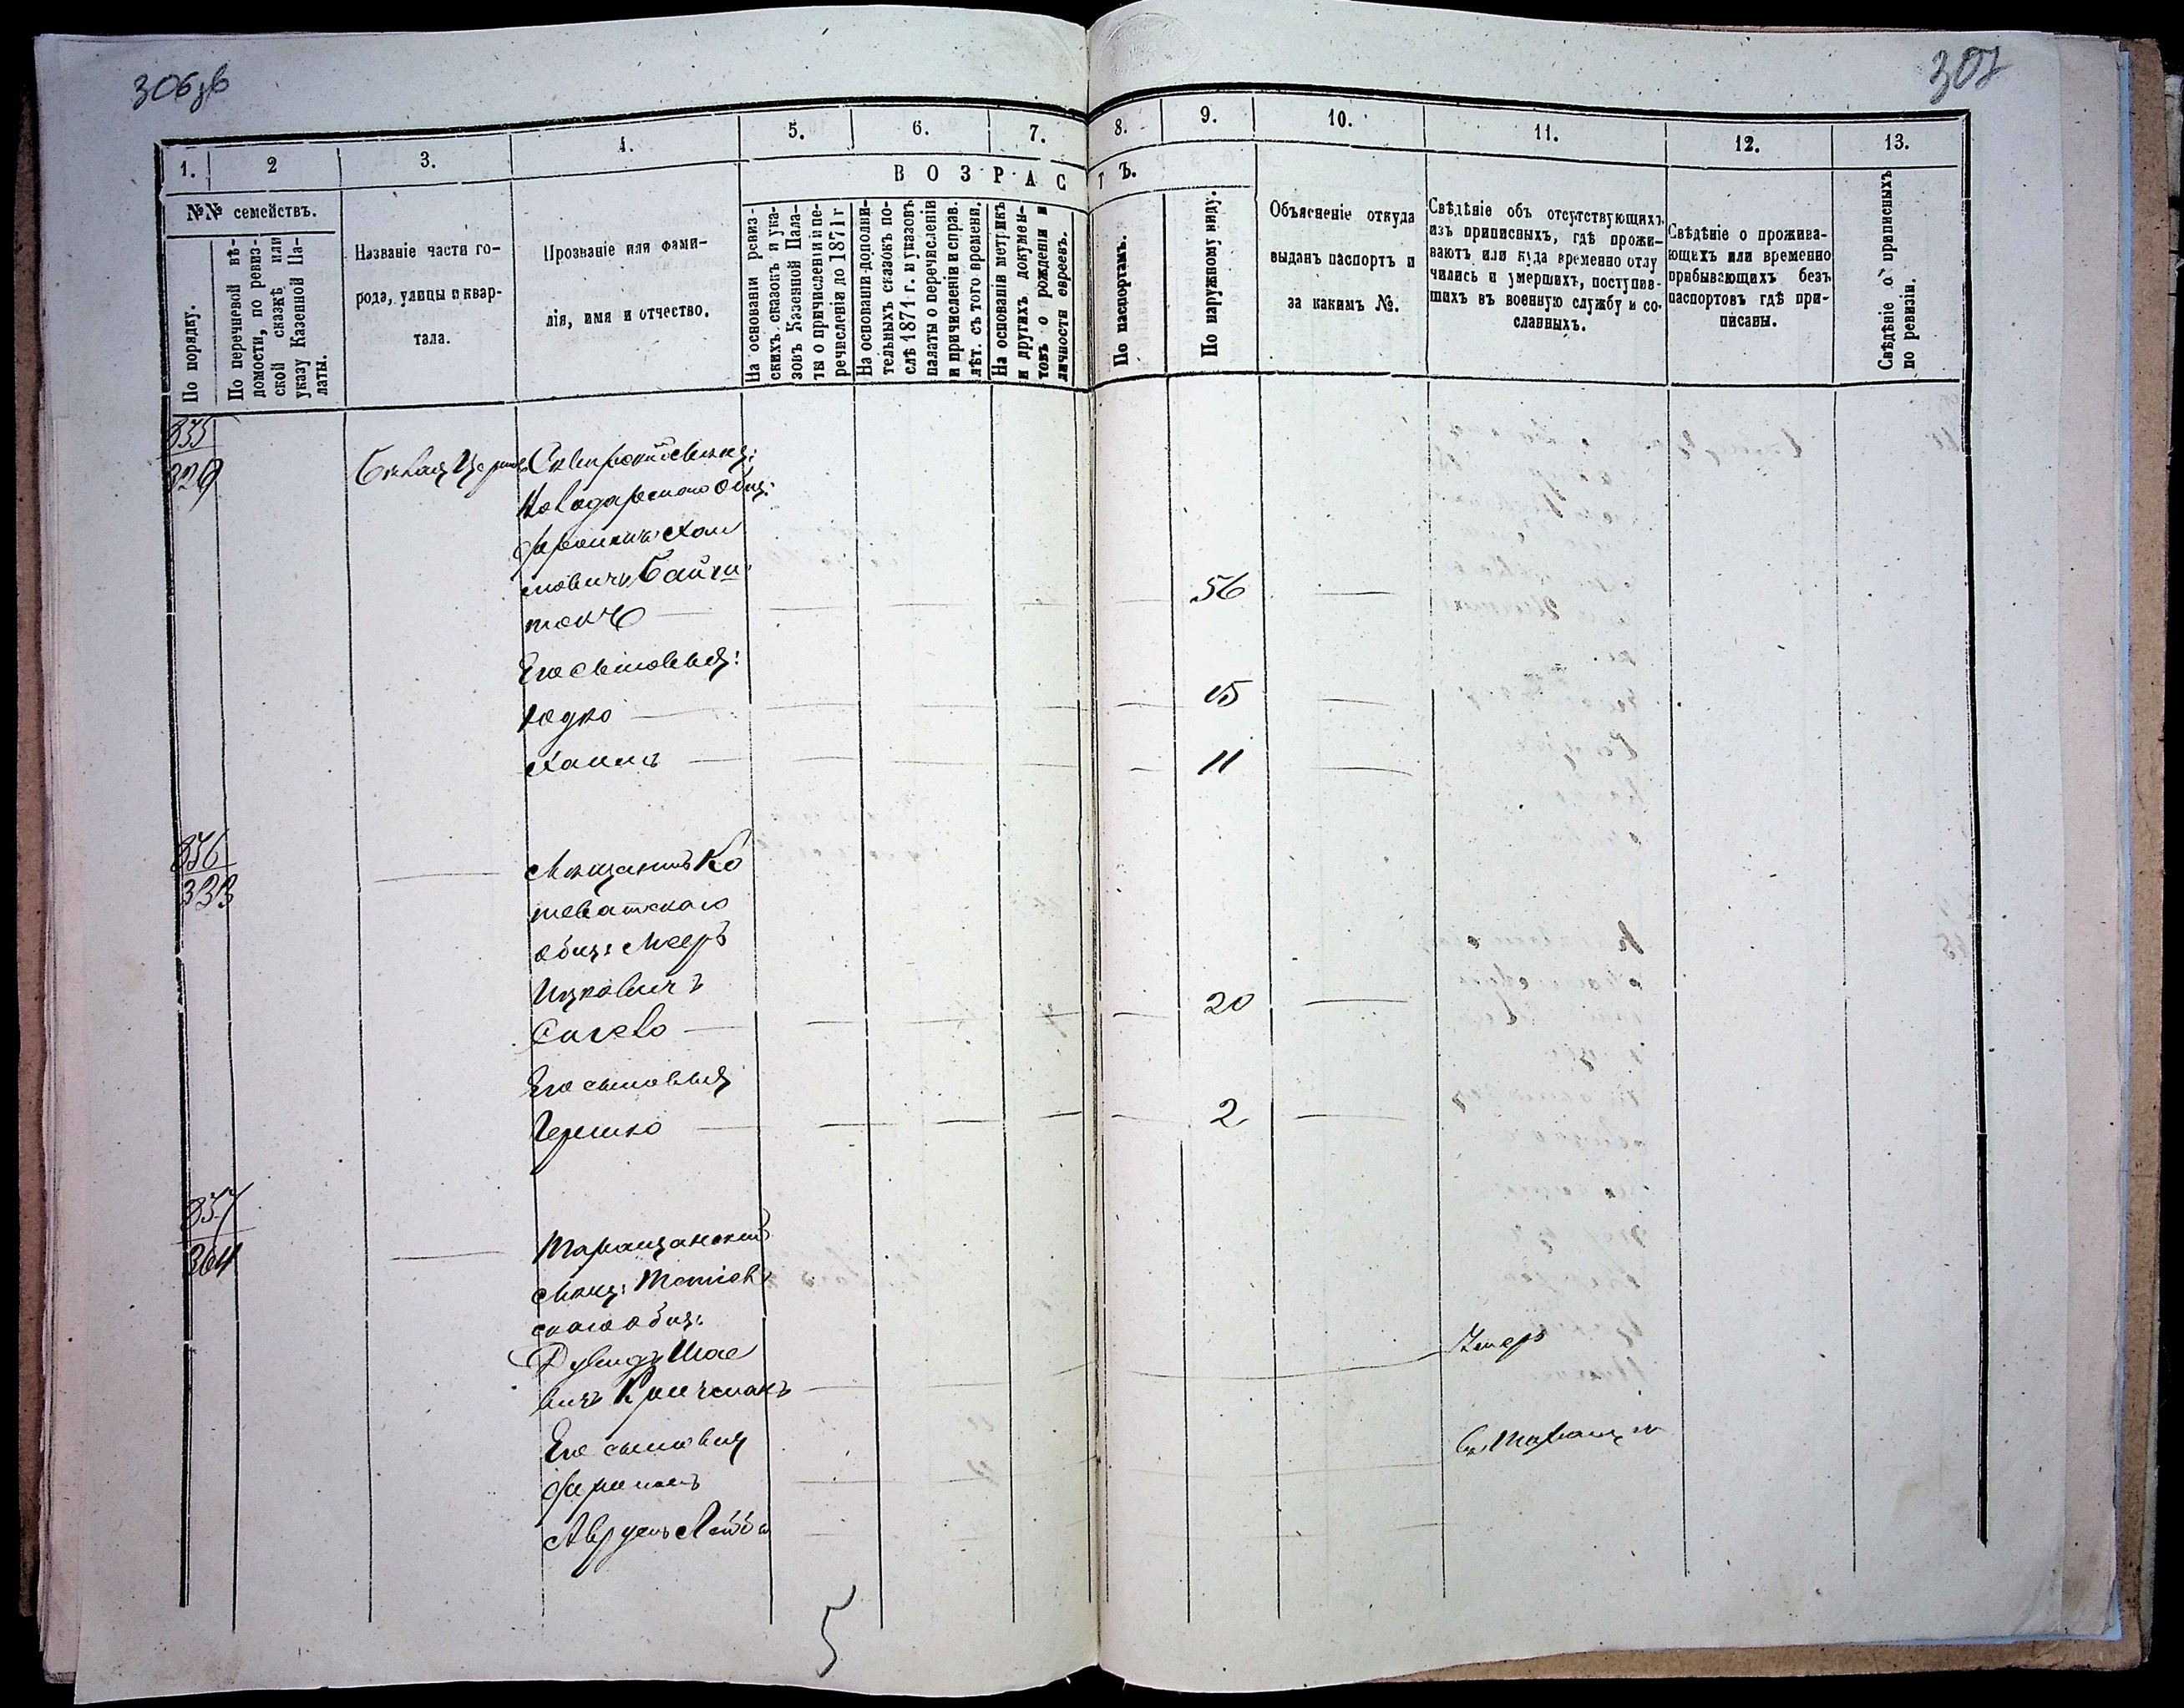 306 зв
307
1.
2
3.
4.
5.
6.
7.
8.
9.
10.
11.
12.
13.
ВОЗРАСТЪ.
№№ семействъ.
По порядку.
По перечневой вѣ-
домости, по ревиз-
ской сказкѣ или
указу Казенной Па-
латы.
Названіе части го-
рода, улицы и квар-
тала.
Прозваніе или фами-
лія, имя и отчество.
На основаніи ревиз-
скихъ сказокъ и ука-
зовъ Казенной Пала-
ты о причисленіи и пе-
речисленіи до 1871 г
На основаніи дополни-
тельныхъ сказокъ по-
слѣ 1871 г. и указовъ
палаты о перечисленіи
и причисленіи и справ.
лѣт. съ того времени.
На основаніи метрикъ
и другихъ докумен-
товъ о рожденіи и
личности евреевъ.
По паспортамъ.
По наружному виду.
Объясненіе откуда
выданъ паспортъ и
за какимъ №.
Свѣдѣніе объ отсутствующихъ
изъ приписныхъ, гдѣ прожи-
ваютъ или куда временно отлу
чились и умершихъ, поступив-
шихъ въ военную службу и со-
сланныхъ.
Свѣдѣніе о прожива-
ющихъ или временно
прибывающихъ безъ
паспортовъ гдѣ при-
писаны.
Свѣдѣніе объ приписныхъ
по ревизіи.
855
329
Бѣлая Церковь Сквирскій мѣщ:
Новодарскаго общ:
Фроимъ Хаи
мовичъ
56
Его сыновья:
Юдко — 15
Хаимъ — 11
856
333
Мѣщанинъ Ко
шеватскаго
общ: Мееръ
Ицковичъ
20
Его сыновья
Гершко — 2
857
364
Таращанскій
мѣщ: Тетіев
скаго общ:
Дувидъ Шае
вичъ
Умеръ
Его сыновья
Фроимъ
Въ Таращѣ
Аврумъ Лейба
5